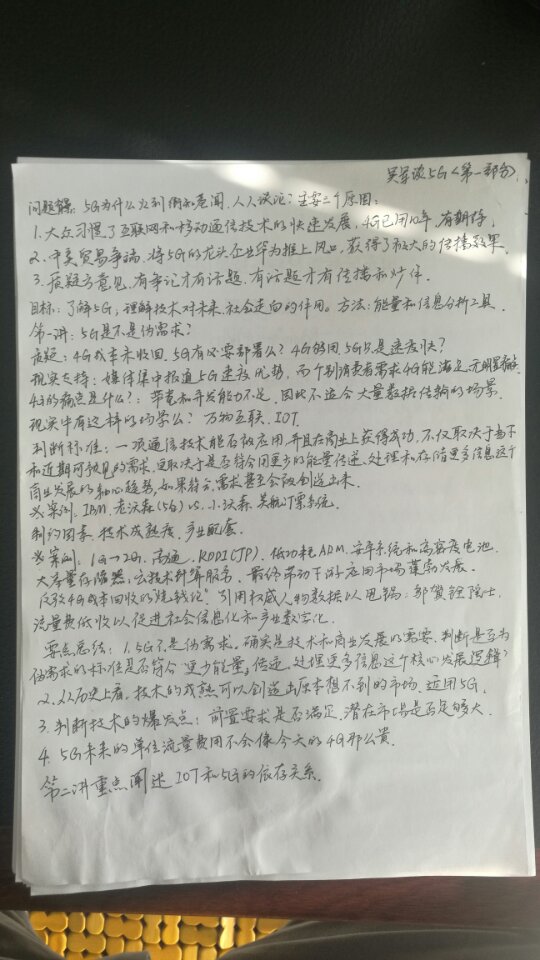 吴军谈5G《第一部分》
问题解: 5G为什么火到街知巷闻, 人人谈论? 主要三个原因:
1.大众习惯了互联网和移动通信技术的快速发展, 4G已用10年, 有期待;
2.中美贸易争端, 将5G的龙头企业华为推上风口, 获得了极大的传播效果.
3.质疑方意见, 有争论才有话题, 有话题才有传播和炒作.
目标: 了解5G, 理解技术对未来社会走向的作用。方法: 能量和信息分析工具.
第一讲: 5G是不是伪需求?
质疑: 4G成本未收回, 5G有必要部署么? 4G够用5G只是速度快?
现实支持: 媒体集中报道5G速度优势, 而个别消费者需求4G能满足无明显痛点
4G的痛点是什么?: 带宽和并发能力不足, 因此不适合大量数据传输的场景.
现实中有这样的场学么? 万物互联, IOT.
判断标准: 一项通信技术能否被应用, 并且在商业上获得成功, 不仅取决于当下
和近期可预见的需求, 更取决于是否符合用更少的能量传递、处理和存储更多信息这个
商业发展的轴心趋势, 如果符合, 需求甚至会被创造出来.
必案例: IBM, 老沃森(5台) vs. 小沃森 美航订票系统.
制约因素: 技术成熟度, 产业配套.
必案例: 1G→2G, 高通, KDDI(JP). 低功耗ARM、安卓系统和高容度电池.
大容量存储器、云技术计算服务, 最终带动下游应用市场蓬勃发展.
反驳4G成本回收的"烧钱论" 引用权威人物数据以甩锅: 邬贺铨院士,
流量费低收以促进社会信息化和产业数字化.
要点总结: 1.5G不是伪需求。确实是技术和商业发展的需要, 判断是否为
伪需求的标准是否符合 更少能量, 传递、处理更多信息这个核心发展逻辑?
2.从历史上看, 技术的成熟可以创造出原本想不到的市场, 适用5G.
3.判断技术的爆发点: 前置要求是否满足, 潜在市场是否足够大.
4. 5G未来的单位流量费用不会像今天的4G那么贵.
第二讲重点阐述IOT和5G的依存关系.